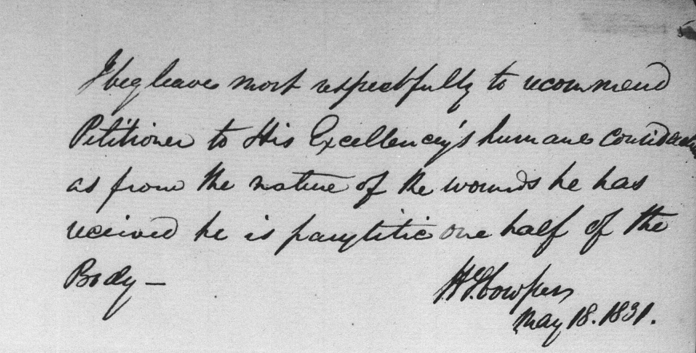 I beg leave most respectfully to recommend
Petitioner to His Excellency's humane Consideration
as from the nature of the wounds he has
received he is parylitic one half of the
Body —
May 18. 1831.